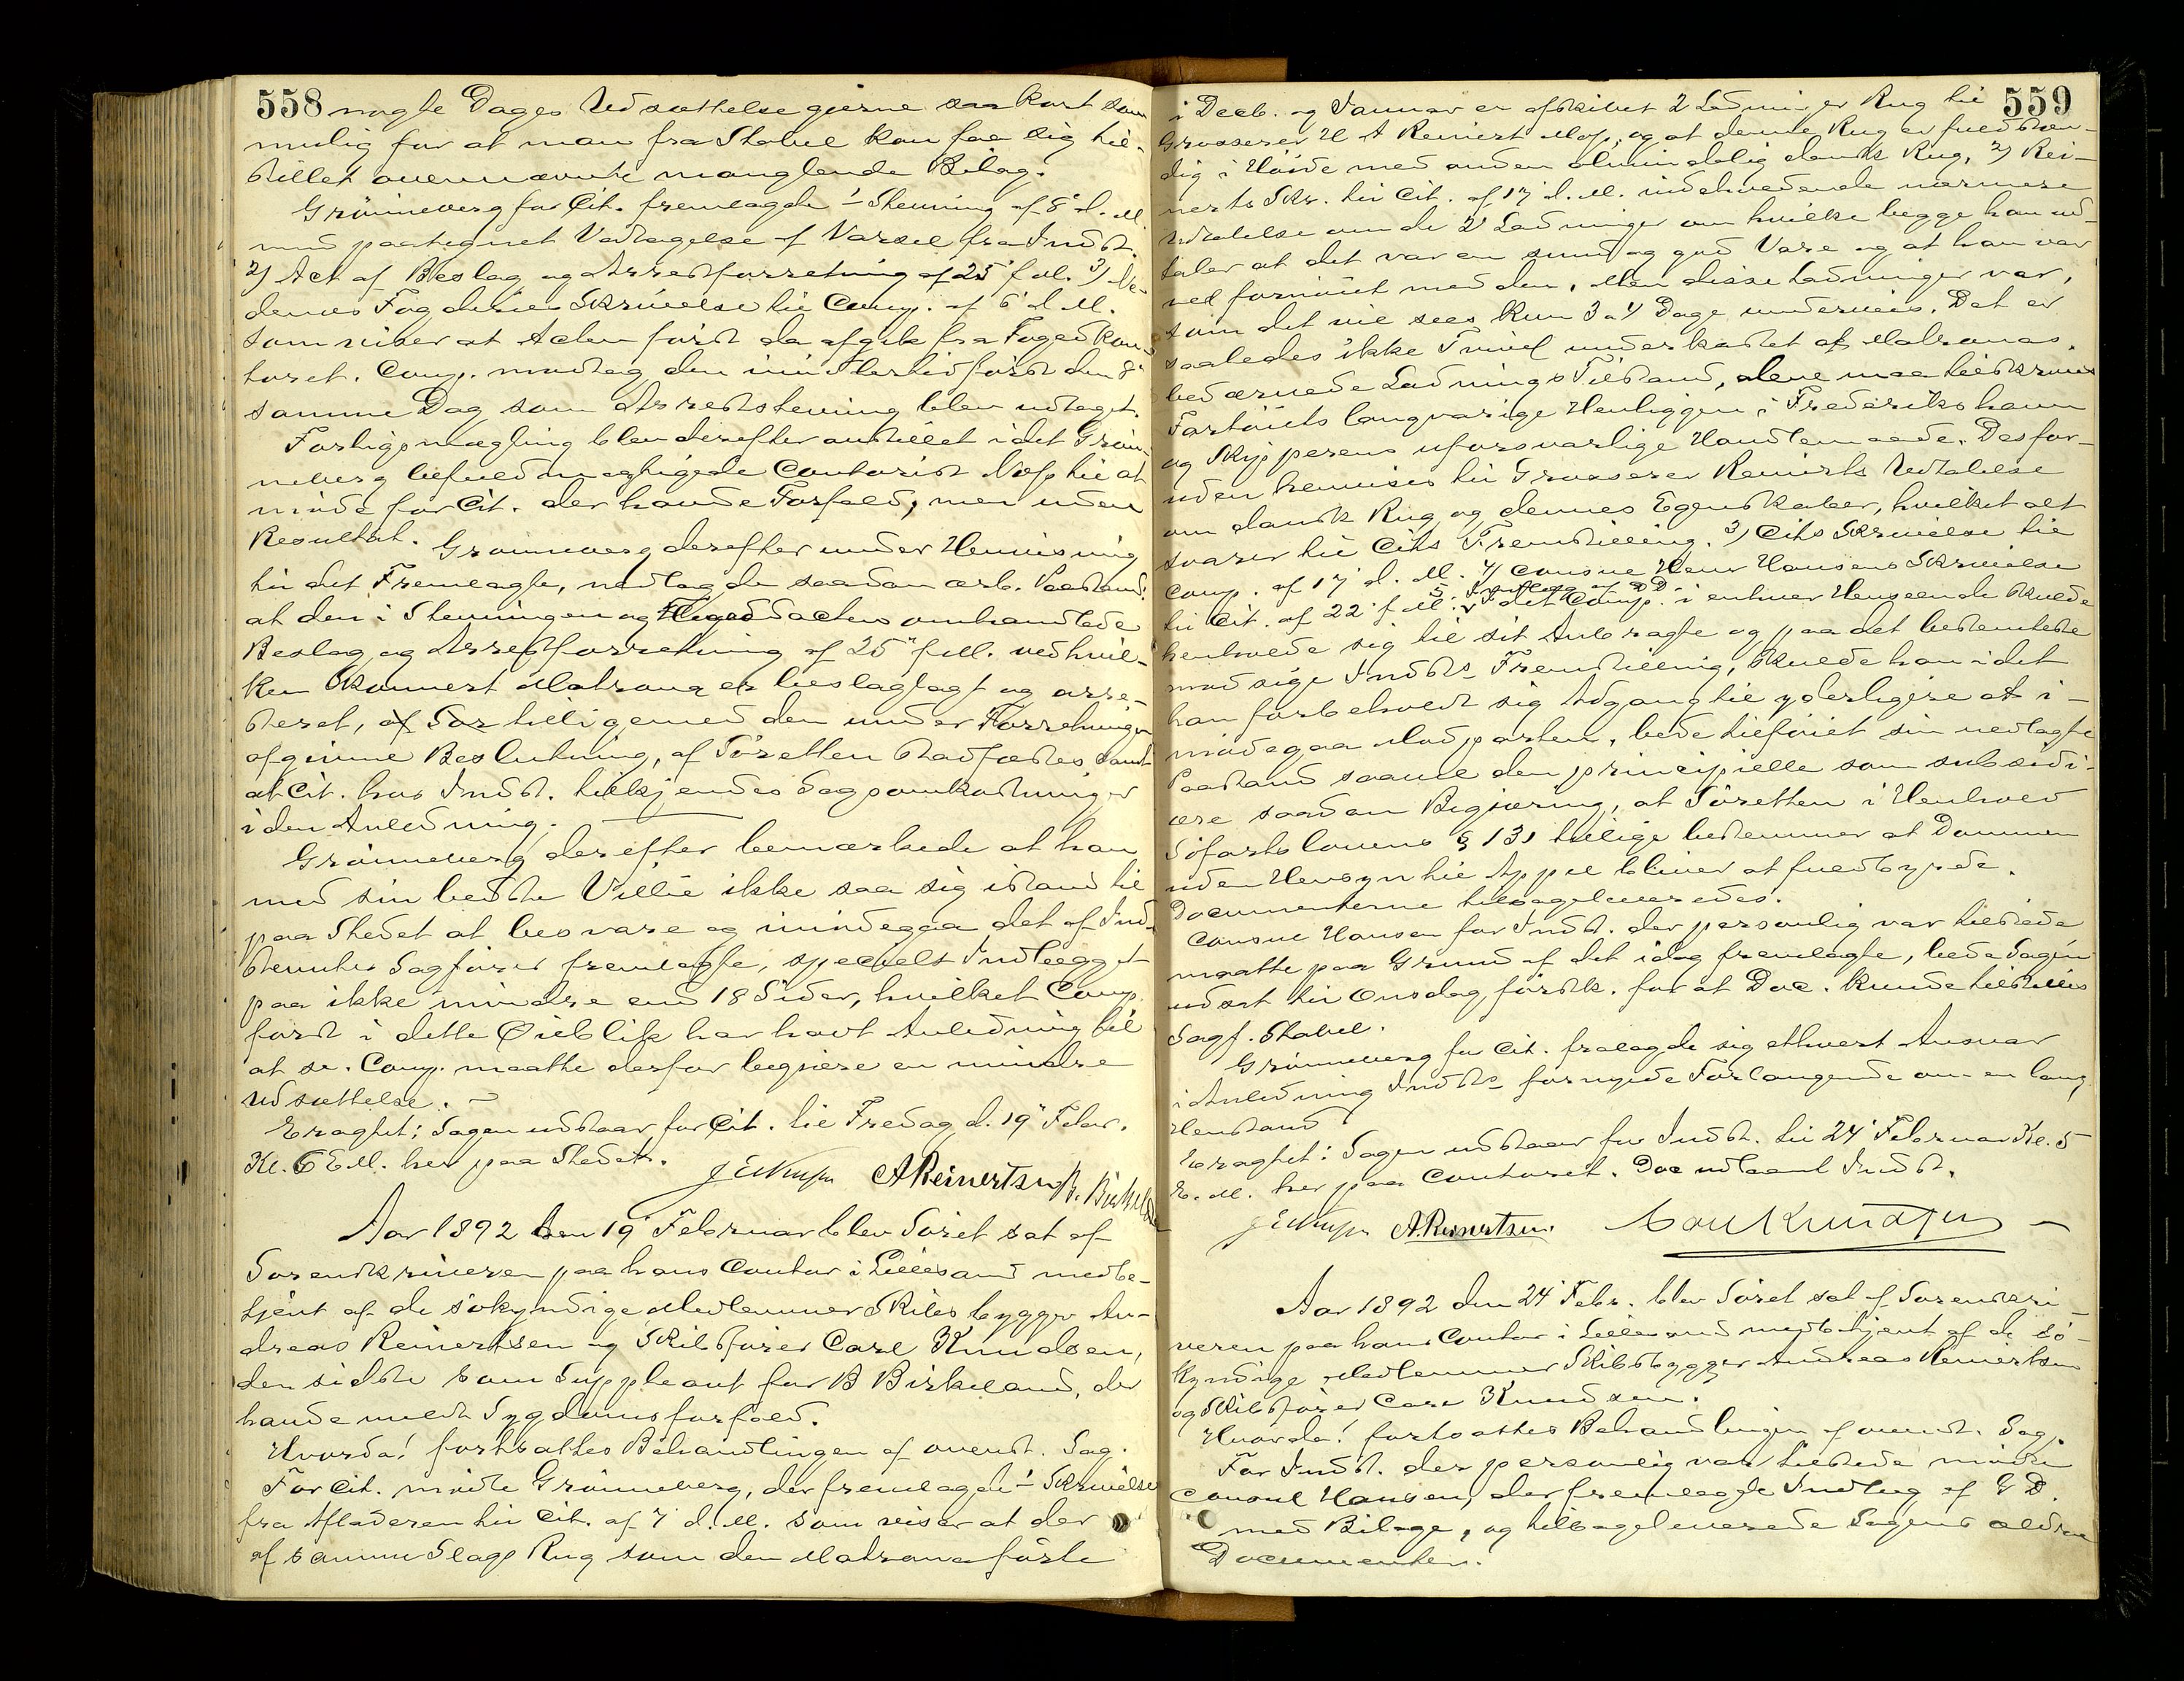 558
nogle Dages Udsættelse gjerne saa kort som
mulig for at man fra Stabel kan faa sig til-
stillet ovennævnte manglende Bilag.
Grønneberg for Cit. fremlagde 1) Stevning af 8' d. M.
med paategnet Vedtagelse af Varsel fra Indst.
2) Act af Beslag og Arrestforretning af 25' f. M. 3)
dennes Fogderies Skrivelse til Comp. af 6' d. M.
som viser at Acten først da afgik fra Fogedkon-
toret. Comp. modtog den imidlertid først den 8'
samme Dag som Arreststevning blev udtaget.
Forligsmægling blev derefter anstillet idet Grøn-
neberg befuldmægtigede Contorist til at
møde for Cit. der havde Forfald, men uden
Resultat.
Grønneberg derefter under Henvisning
til det Fremlagte, nedlagde saadan ærb. Paastand:
at den i Stevningen og Fogedacten omhandlede
Beslag og Arrestforretning af 25' f. M. ved hvil-
ken Skonnert Matrona er beslaglagt og arre-
steret, tilligemed den under Forretningen
afgivne Beslutning, af Søretten stadfæstes samt
at Cit. hos Indst. tilkjendes Sagsomkostninger
i den Anledning.
Grønneberg derefter bemærkede at han
med sin bedste Villie ikke saa sig istand til
paa Stedet at besvare og imødegaa det af Ind-
stevntes Sagfører fremlagte, specielt Indlægget
paa ikke mindre end 18 Sider, hvilket Comp.
først i dette Øieblik har havt Anledning til
at se. Comp. maatte derfor begjære en mindre
Udsættelse.
Eragtet: Sagen udstaar for Cit. til Fredag d. 19' Febr.
Kl. 6 E.M. her paa Stedet.
A Reinertsen B. Birkeland
Aar 1892 den 19' Februar blev Søret sat af
Sorenskriveren paa hans Contor i Lillesand medbe-
tjent af de søkyndige Medlemmer Skibsbygger An-
dreas Reinertsen og Skibsfører Carl Knudsen,
den sidste som Suppleant for B Birkeland, der
havde meldt Sygdomsforfald.
Hvorda! fortsattes Behandlingen af ovenst. Sag.
For Cit. mødte Grønneberg, der fremlagde 1) Skrivelse
fra Afladeren til Cit. af 7 d. M. som viser at der
af samme Slags Rug som den Matrona førte
559
i Decb. og Januar er afskibet 2 Ladninger Rug til
Grosserer H A Reinert Moss, og at denne Rug er fuldstæn-
dig i Høide med anden almindelig dansk Rug, 2) Rei-
nerts Skr. til Cit. af 17' d. M. indeholdende nærmere
Udtalelse om de 2 Ladninger om hvilke begge han ud-
taler at det var en sund og god Vare og at han var
vel fornøiet med den, Men disse Ladninger var,
som det vil sees kun 3 a 4 Dage underveis. Det er
saaledes ikke Tvivl underkastet at Matronas
bedærvede Ladnings Tilstand, alene maa tilskrives
Fartøiets langvarige Henliggen i Frederikshavn
og Skipperens uforsvarlige Handlemaade. Desfor-
uden henvises til Grosserer Reinerts Udtalelse
om dansk Rug og dennes Egenskaber, hvilket alt
svarer til Cits Fremstilling. 3) Cits Skrivelse til
Comp. af 17' d. M. 4) Consul Hansens Skrivelse
til Cit. af 22' f. M. 5) Indlæg af D D Idet Comp. i enhver Henseende skulde
henholde sig til sit Anbragte og paa det bestemteste
modsige Indsts Fremstilling, skulde han idet
han forbeholdt sig Adgang til yderligere at i-
mødegaa Modparten, bede tilføiet sin nedlagte
Paastand saavel den principielle som subsidi-
ære saadan Begjæring, at Søretten i Henhold
Søfartslovens § 131 tillige bestemmer at Dommen
uden Hensyn til Appel bliver at fuldbyrde.
Documenterne tilbageleveredes.
Consul Hansen for Indst. der personlig var tilstede
maatte paa Grund af det idag fremlagte, bede Sagen
udsat til Onsdag førstk. for at Doc. kunde tilstilles
Sagf. Stabel.
Grønneberg for Cit. fralagde sig ethvert Ansvar
i Anledning Indsts fornyede Forlangende om en lang
Henstand
Eragtet: Sagen udstaar for Indst. til 24' Februar Kl. 5
E.M. her paa Contoret. Doc udlaant Indst.
A. Reinertsen. Carl Knudsen
Aar 1892 den 24' Febr. blev Søret sat af Sorenskri-
veren paa hans Contor i Lillesand medbetjent af de sø-
kyndige Medlemmer Skibsbygger Andreas Reinertsen
og Skibsfører Carl Knudsen.
Hvorda! fortsattes Behandlingen af ovenst. Sag.
For Indst. der personlig var tilstede mødte
Consul Hansen, der fremlagde Indlæg af G. D.
med Bilage, og tilbageleverede Sagens ældre
Documenter.